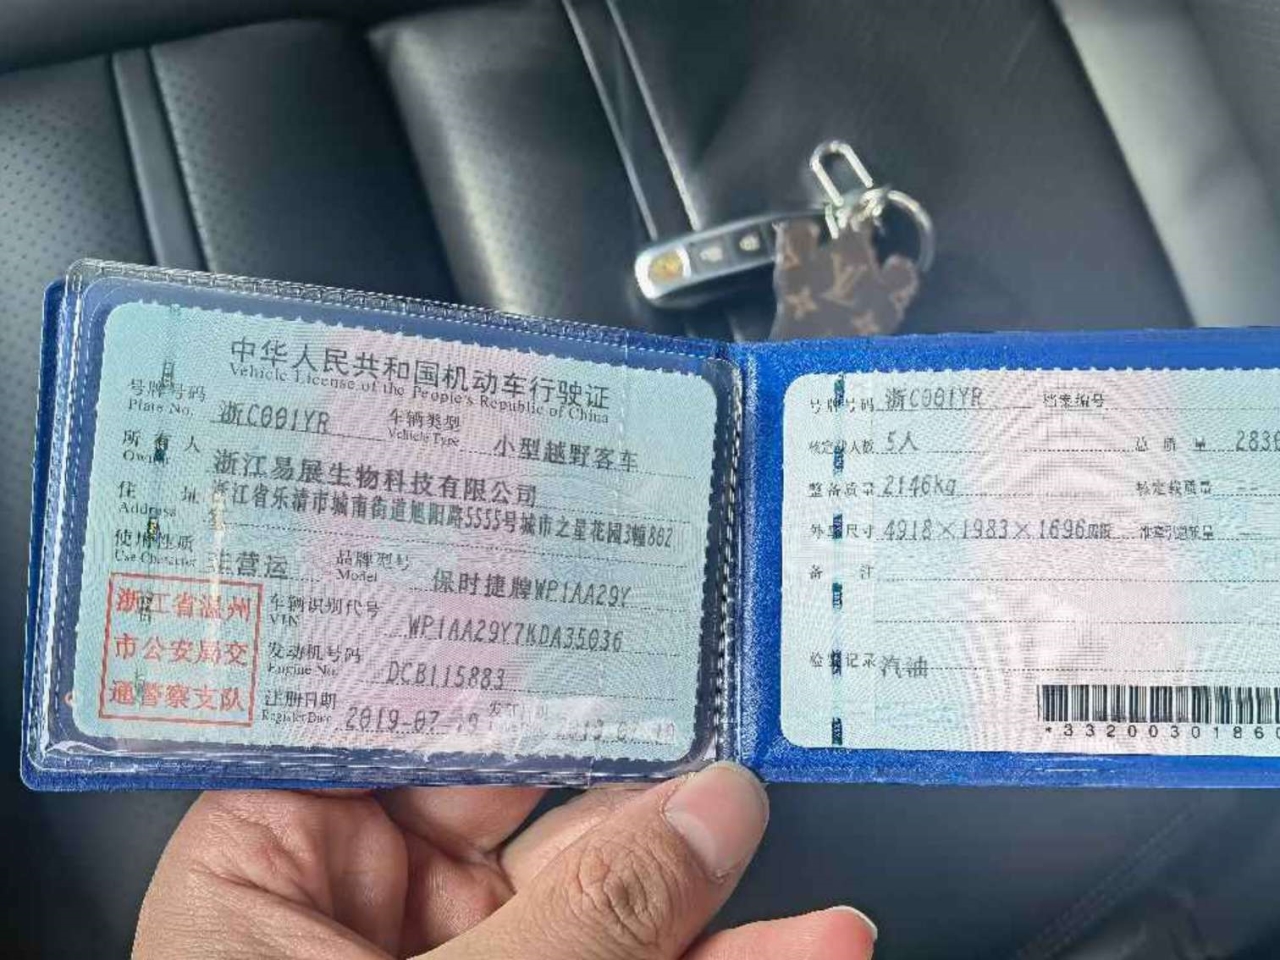 中华人民共和国机动车行驶证
Vehicle License of the People's Republic of China
号牌号码 浙C001YR 车辆类型 小型越野客车
Plate No. Vehicle Type
所有人 浙江易展生物科技有限公司
Owner
住址 浙江省乐清市城南街道旭阳路5555号城市之星花园3幢802
Address
使用性质 非营运 品牌型号 保时捷牌WP1AA29Y
Use Character Model
浙江省温州
市公安局交
通警察支队
车辆识别代号 WP1AA29Y7KDA35036
VIN
发动机号码 DCB115883
Engine No.
注册日期 2019-07-19 发证日期 2019-07-19
Register Date
号牌号码 浙C001YR 档案编号
核定载人数 5人 总质量 283
整备质量 2146Kg 核定载质量 --
外廓尺寸 4918×1983×1696mm 准牵引总质量 --
备注
检验记录 汽油
*3320030186